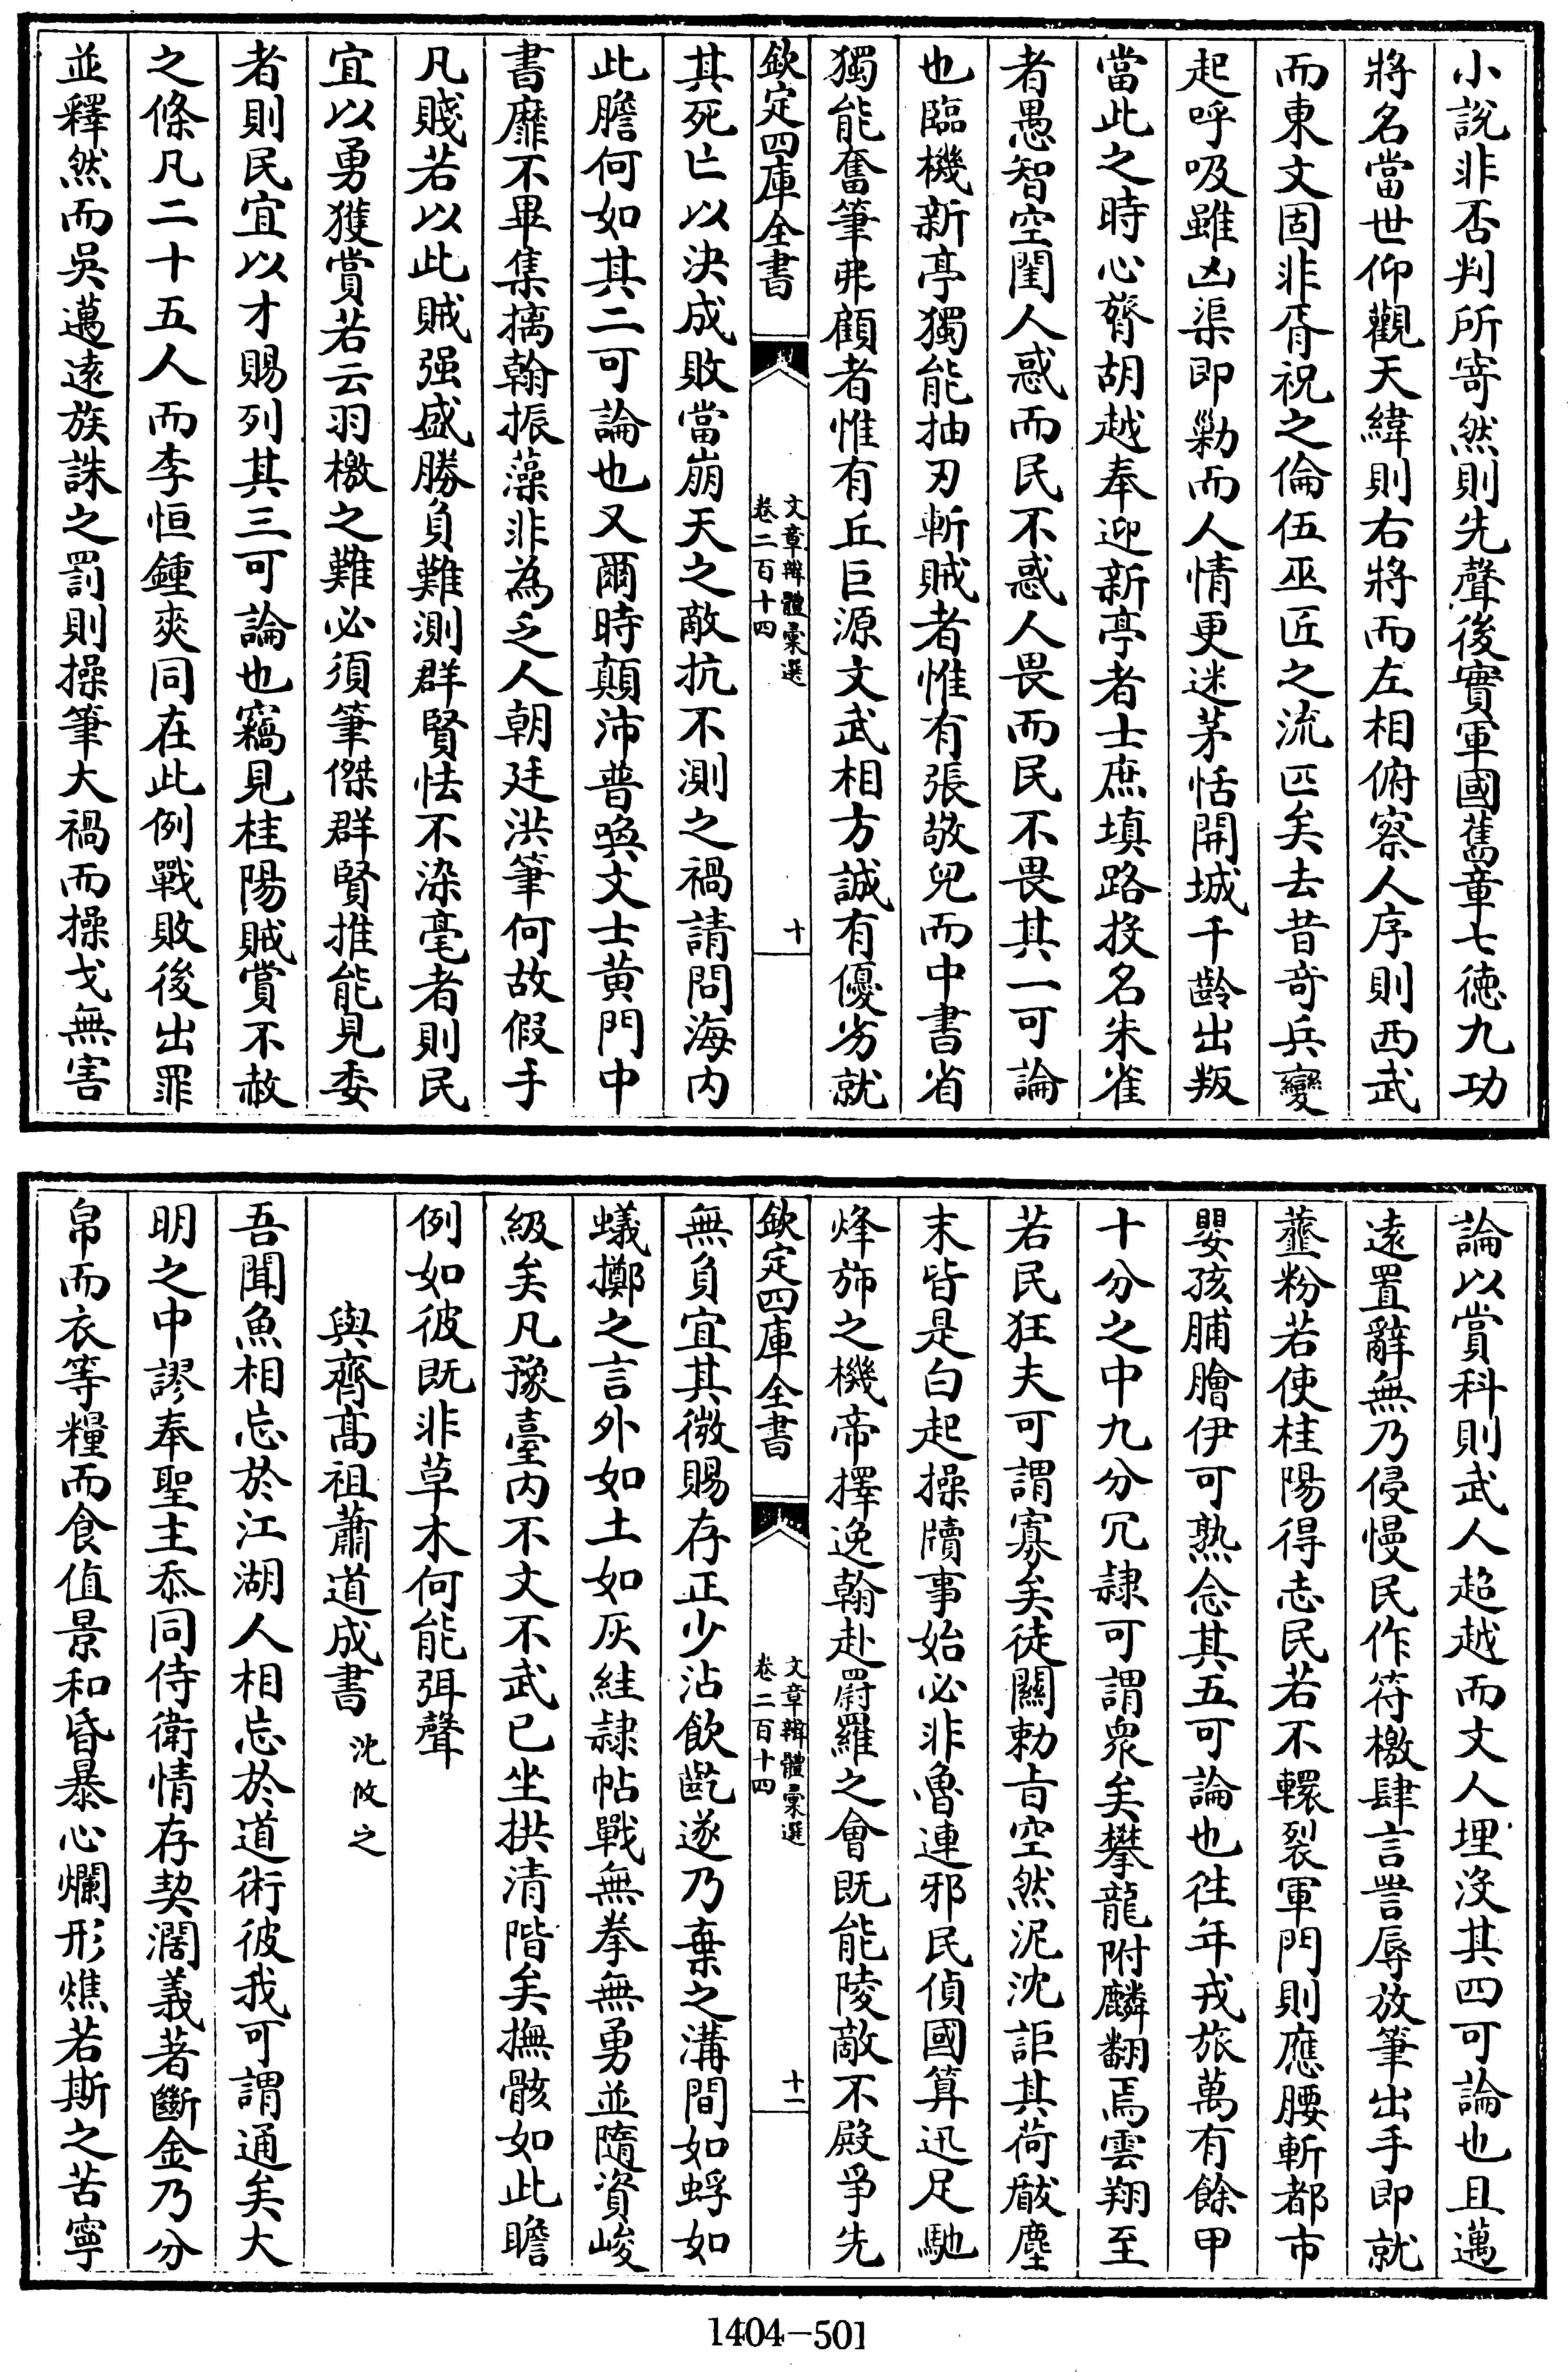 小說非否判所寄然則先聲後實軍國舊章七徳九功
將名當世仰觀天緯則右將而左相俯察人序則西武
而東文固非胥祝之倫伍巫匠之流匹矣去昔奇兵變
起呼吸雖凶渠即勦而人情更迷茅恬開城千齡出叛
當此之時心膂胡越奉迎新亭者士庶填路投名朱雀
者愚智空閨人惑而民不惑人畏而民不畏其一可論
也臨機新亭獨能抽刃斬賊者惟有張敬兒而中書省
獨能奮筆弗顧者惟有丘巨源文武相方誠有優劣就
欽定四庫全書
文章辨體彙選
卷二百十四
十
其死亡以決成敗當崩天之敵抗不測之禍請問海内
此膽何如其二可論也又爾時顛沛普喚文士黄門中
書靡不畢集摛翰振藻非為乏人朝廷洪筆何故假手
凡賤若以此賊强盛勝負難測群賢怯不染毫者則民
宜以勇獲賞若云羽檄之難必須筆傑群賢推能見委
者則民宜以才賜列其三可論也竊見桂陽賊賞不赦
之條凡二十五人而李恒鍾爽同在此例戰敗後出罪
並釋然而吳邁逺族誅之罰則操筆大禍而操戈無害
論以賞科則武人超越而文人埋没其四可論也且邁
逺置辭無乃侵慢民作符檄肆言詈辱放筆出手即就
虀粉若使桂陽得志民若不轘裂軍門則應腰斬都市
嬰孩脯膾伊可熟念其五可論也徃年戎旅萬有餘甲
十分之中九分冗隷可謂衆矣攀龍附麟翻焉雲翔至
若民狂夫可謂寡矣徒闗勅㫖空然泥沈詎其荷䵢塵
末皆是白起操牘事始必非魯連邪民偵國算迅足馳
烽斾之機帝擇逸翰赴罻羅之會既能陵敵不殿爭先
欽定四庫全書
文章辨體彙選
卷二百十四
十一
無負宜其微賜存正少沾飲齕遂乃棄之溝間如蜉如
蟻擲之言外如土如灰絓隷帖戰無拳無勇並隨資峻
級矣凡豫臺内不文不武已坐拱清階矣撫骸如此瞻
例如彼既非草木何能弭聲
與齊髙祖蕭道成書 沈攸之
吾聞魚相忘於江湖人相忘於道術彼我可謂通矣大
明之中謬奉聖主忝同侍衛情存契濶義著斷金乃分
帛而衣等糧而食值景和昏暴心爛形燋若斯之苦寧
1404—501